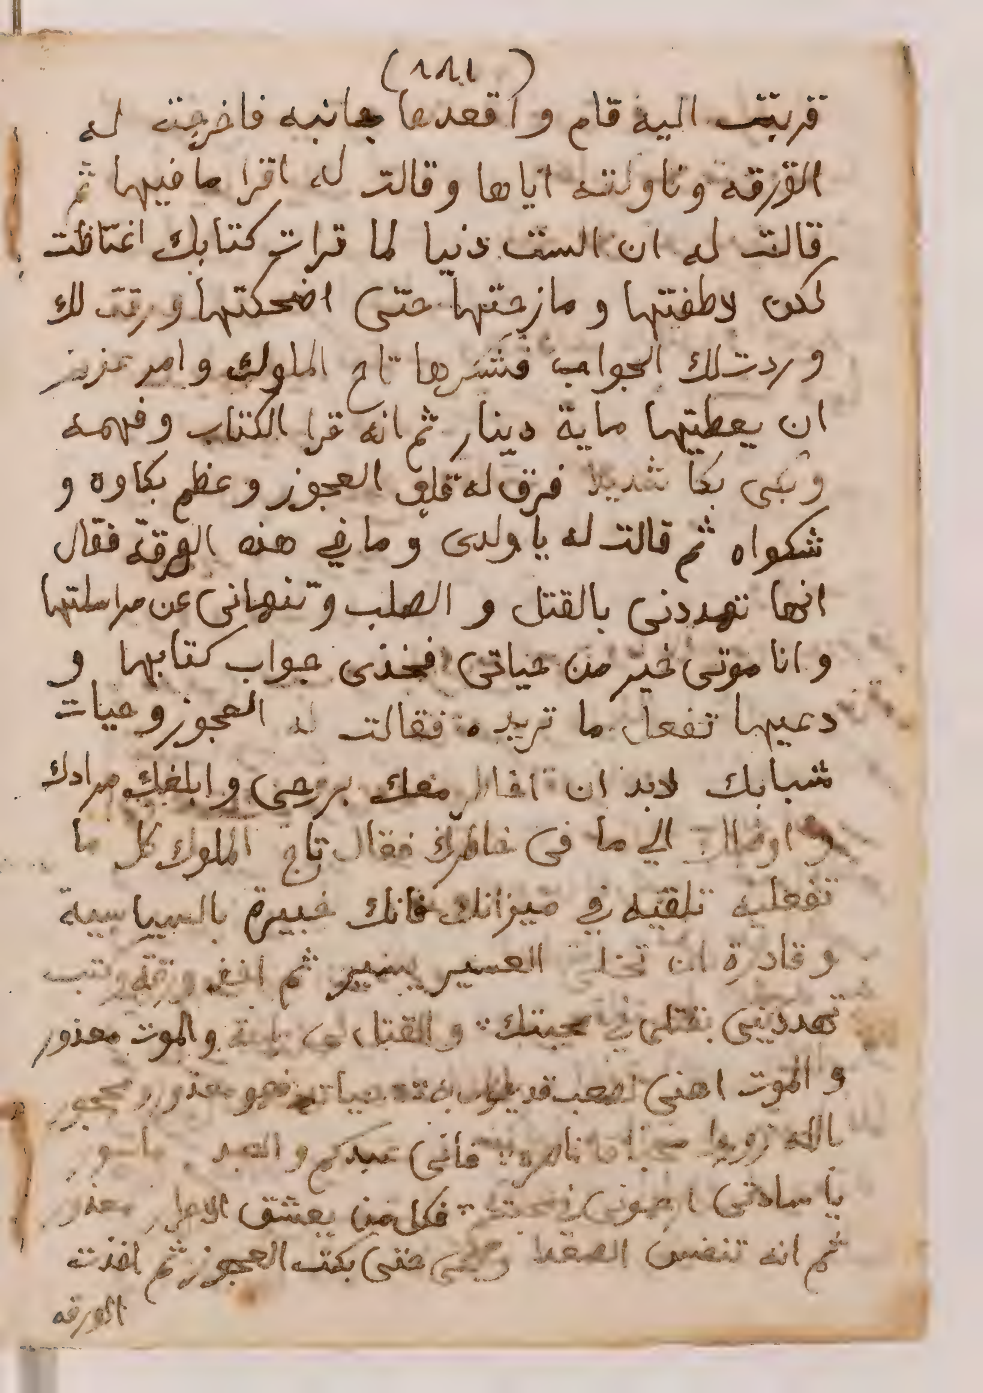 (١٨١)
قربت اليه قام واقعدها بجانبه فاخرجت له
الورقه وناولته اياها وقالت له اقرا ما فيها ثم
قالت له ان الست دنيا لما قرات كتابك اغتاظت
لكن لاطفتها ومازحتها حتى اضحكتها ورقت لك
وردت لك الجواب فشكرها تاج الملوك وامر عزيز
ان يعطيها ماية دينار ثم انه قرا الكتاب وفهمه
وبكى بكا شديدا فرق له قلب العجوز وعظم بكاوه و
شكواه ثم قالت له يا ولدى وما في هذه الورقة فقال
انها تهددنى بالقتل و الصلب وتنهانى عن مراسلتها
وانا موتى خير من حياتى فخذى جواب كتابها و
دعيها تفعل ما تريده فقالت له العجوز وحيات
شبابك لابد ان اخاطر معك بروحى وابلغك مرادك
و اوصلك الي ما فى خاطرك فقال تاج الملوك كل ما
تفعليه تلقيه في ميزانك فانك خبيرة بالسياسية
وقادرة ان تخلى العسير يسير ثم اخذ ورقة وكتب
تهددينى بقتلى في محبتك والقتل لى راحة والموت معذور
والموت اهنى لصعب قد حياته فهو معذور ومحجور
بالله زوروا محبا ناصره فانى عبدكم والعبد ماسور
يا سادتى ارحمونى فكل من يعشق الاحرار معذور
ثم انه تنفس الصعدا وبكى حتى بكت العجوز ثم اخذت
الورقه